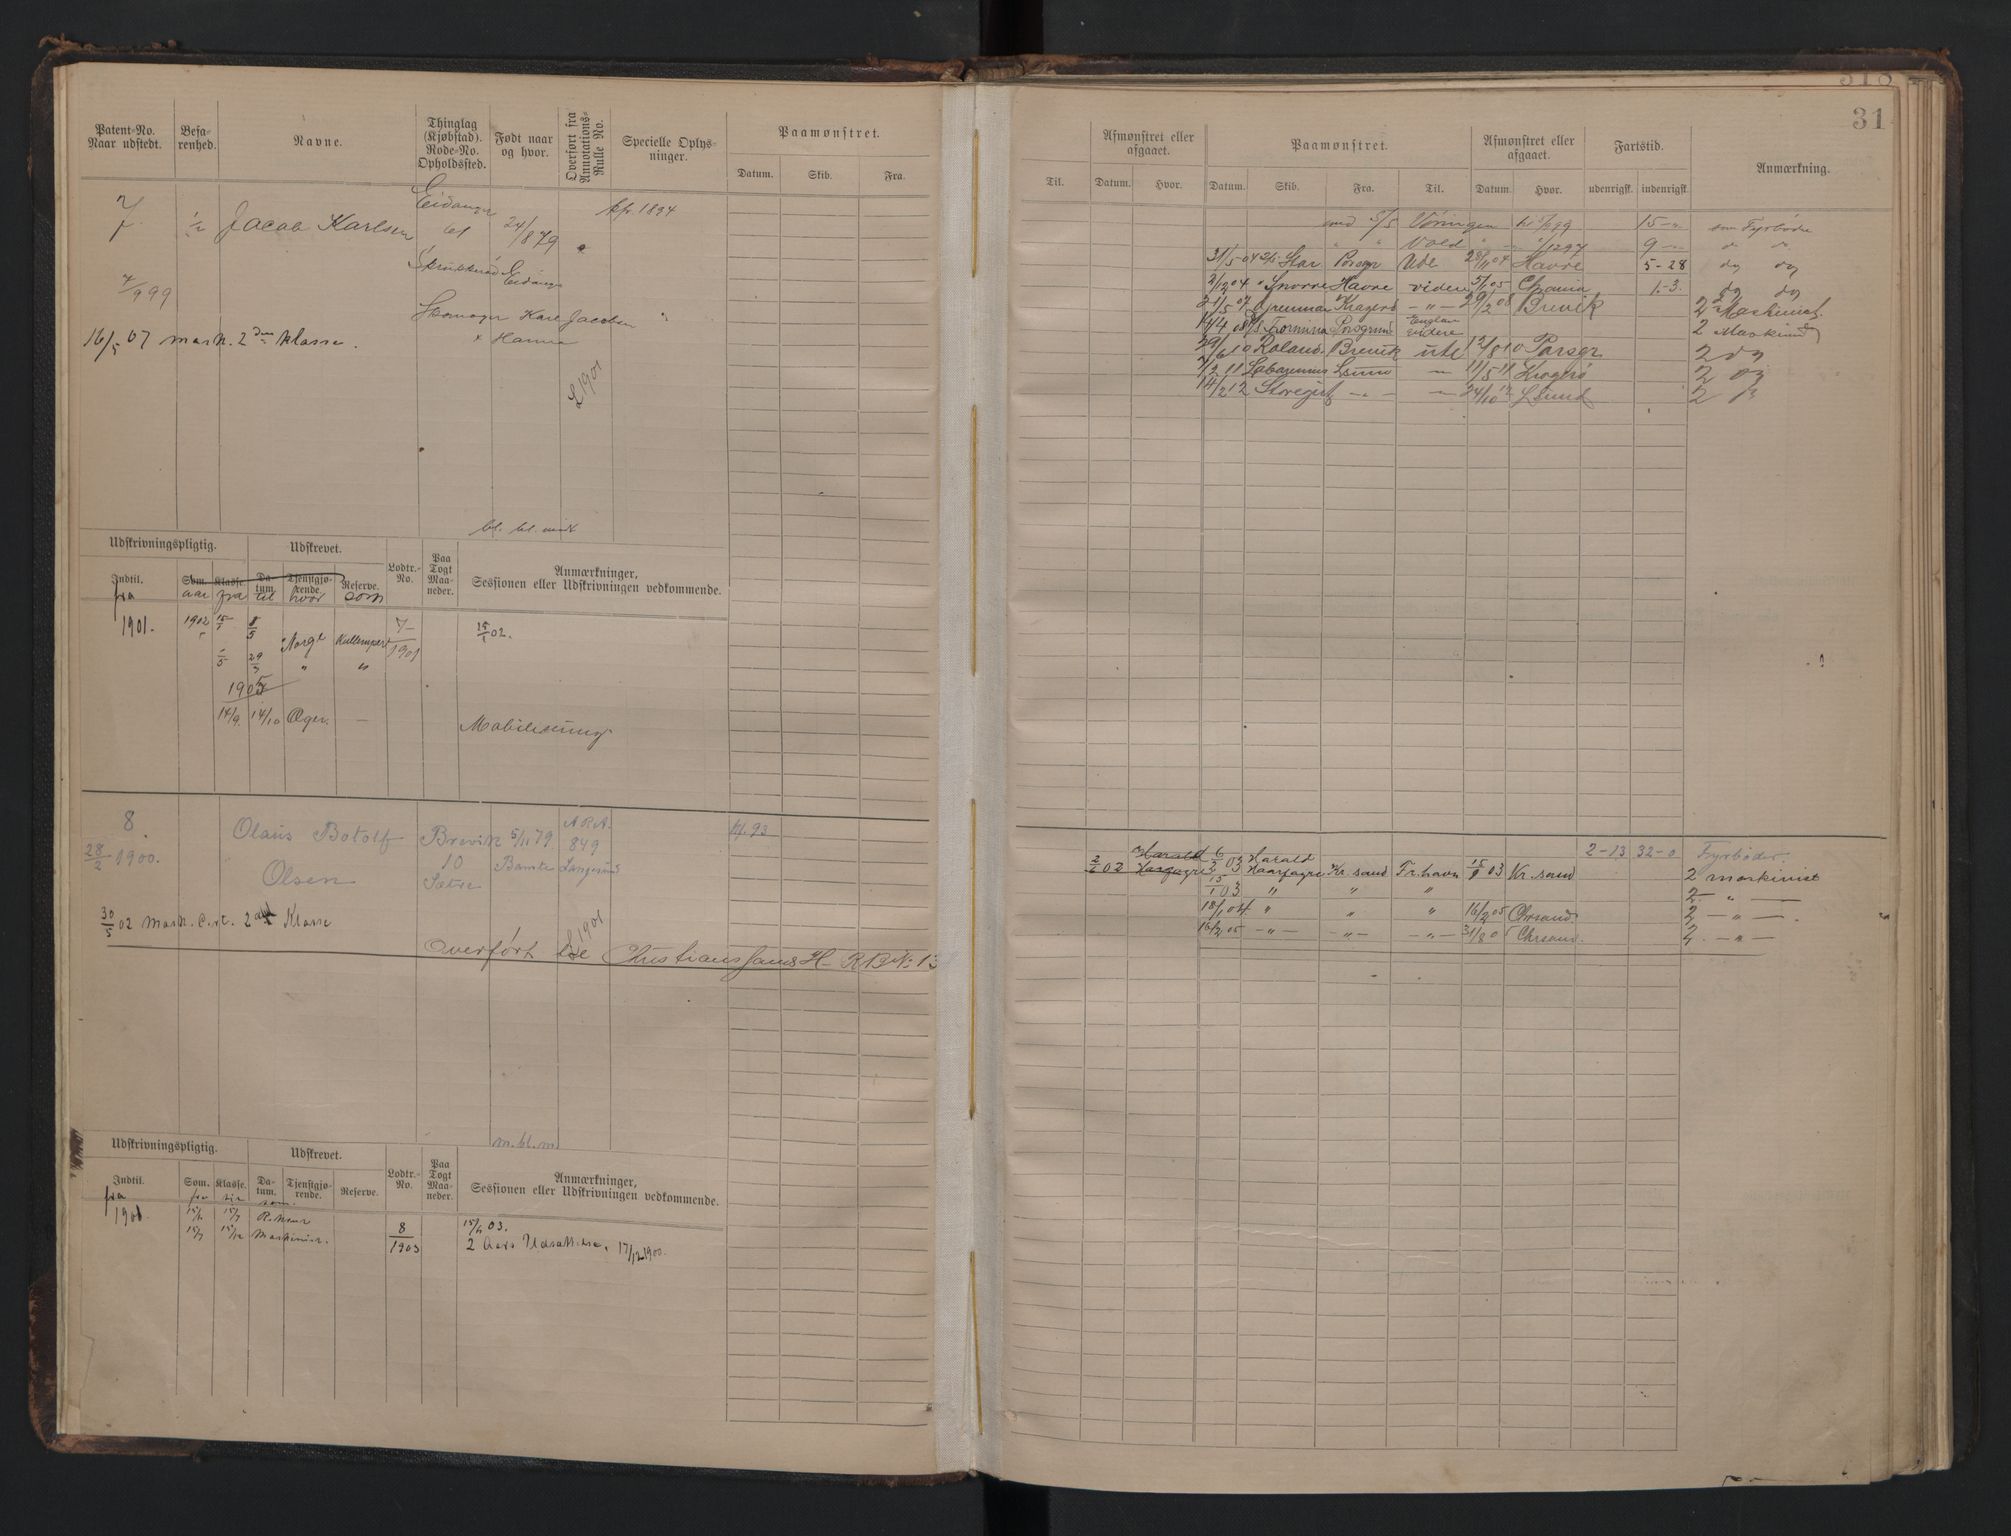 318
31
Patent-No. Naar udstedt.
Befarenhed.
Navne.
Thinglag (Kjøbstad). Rode-No. Opholdssted.
Født naar og hvor.
Overført fra Annotations-Rulle No.
Specielle Oplysninger.
Paamønstret.
Datum. Skib. Fra.
7. 1/2 Jacob Karlsen Eidanger 24/8 79 kfr. 1894
61
Eidanger
7/9 99
Karl Jacobsen
16/5 07 mask. 2den klasse. Hanna
L 1901
bl. bl. midt
Udskrivningspligtig. Udskrevet. Lodtr.-No. Paa Togt Maaneder. Anmærkninger, Sessionen eller Udskrivningen vedkommende.
Indtil. Som. Klasse. Datum. Tjenstgjørende. Reserve.
fra aar fra til hvor som
1901. 1902 15/1 8/5 Norge Kullemper 7/1901 15/1 02.
1/5 29/3 " "
1905
14/9. 14/10 Æger. —
Mobilisering
8. Olaus Botolf Brevik 5/11 79 A.R.A. kf. 93
28/2 1900. 10 Bamle 849
Olsen Sætre Langesund
30/5 02 Mask. Cert. 2den Klasse L 1901
Overført til Christianssands H- R B No 13
m. bl. m
Udskrivningspligtig. Udskrevet. Lodtr.-No. Paa Togt Maaneder. Anmærkninger, Sessionen eller Udskrivningen vedkommende.
Indtil. Som. Klasse. Datum. Tjenstgjørende. Reserve.
fra fra til som
1901. 15/1 15/7
15/7 15/12 Maskinist. 8/1903 15/1 03.
2 Aars Udsættelse, 17/12 1900.
Til.
Afmønstret eller afgaaet.
Datum. Hvor.
Paamønstret.
Datum. Skib. Fra. Til.
Afmønstret eller afgaaet.
Datum. Hvor.
Fartstid.
udenrigsk. indenrigsk.
Anmærkning.
med Vøringen 15-" som Fyrbøder
" " Vold 9-"
31/5 04 Star Porsgr Ude 28/11 04 Havre 5-28 do do
2/12 04 Snorre Havre videre 5/1 05 1-3. do do
21/5 07 Kragerø -"- 29/2 08 Brevik 2 Maskinist.
14/4 08 Porsgrund England videre 2 Maskinist
29/6 10 Roland Brevik ute 12/8 10 Porsgr 2 do
7/2 11 Lsund — 11/5 11 Kragerø 2 do
14/2 12 Storegut -"- — 24/10 12 LSund 2
2-13 32-0 Fyrbøder.
2/6 02 Harald Haarfagre 6/2 03 Harald Haarfagre Kr. sand Fr. havn 15/9 03 Kr. sand 2 maskinist
15/1 03 " " " 2 — " —
18/1 04 " " " 16/2 05 Chrsand 2 — " —
16/2 05 -"- -"- -"- 31/8 05 Chrsand. 2. — " —